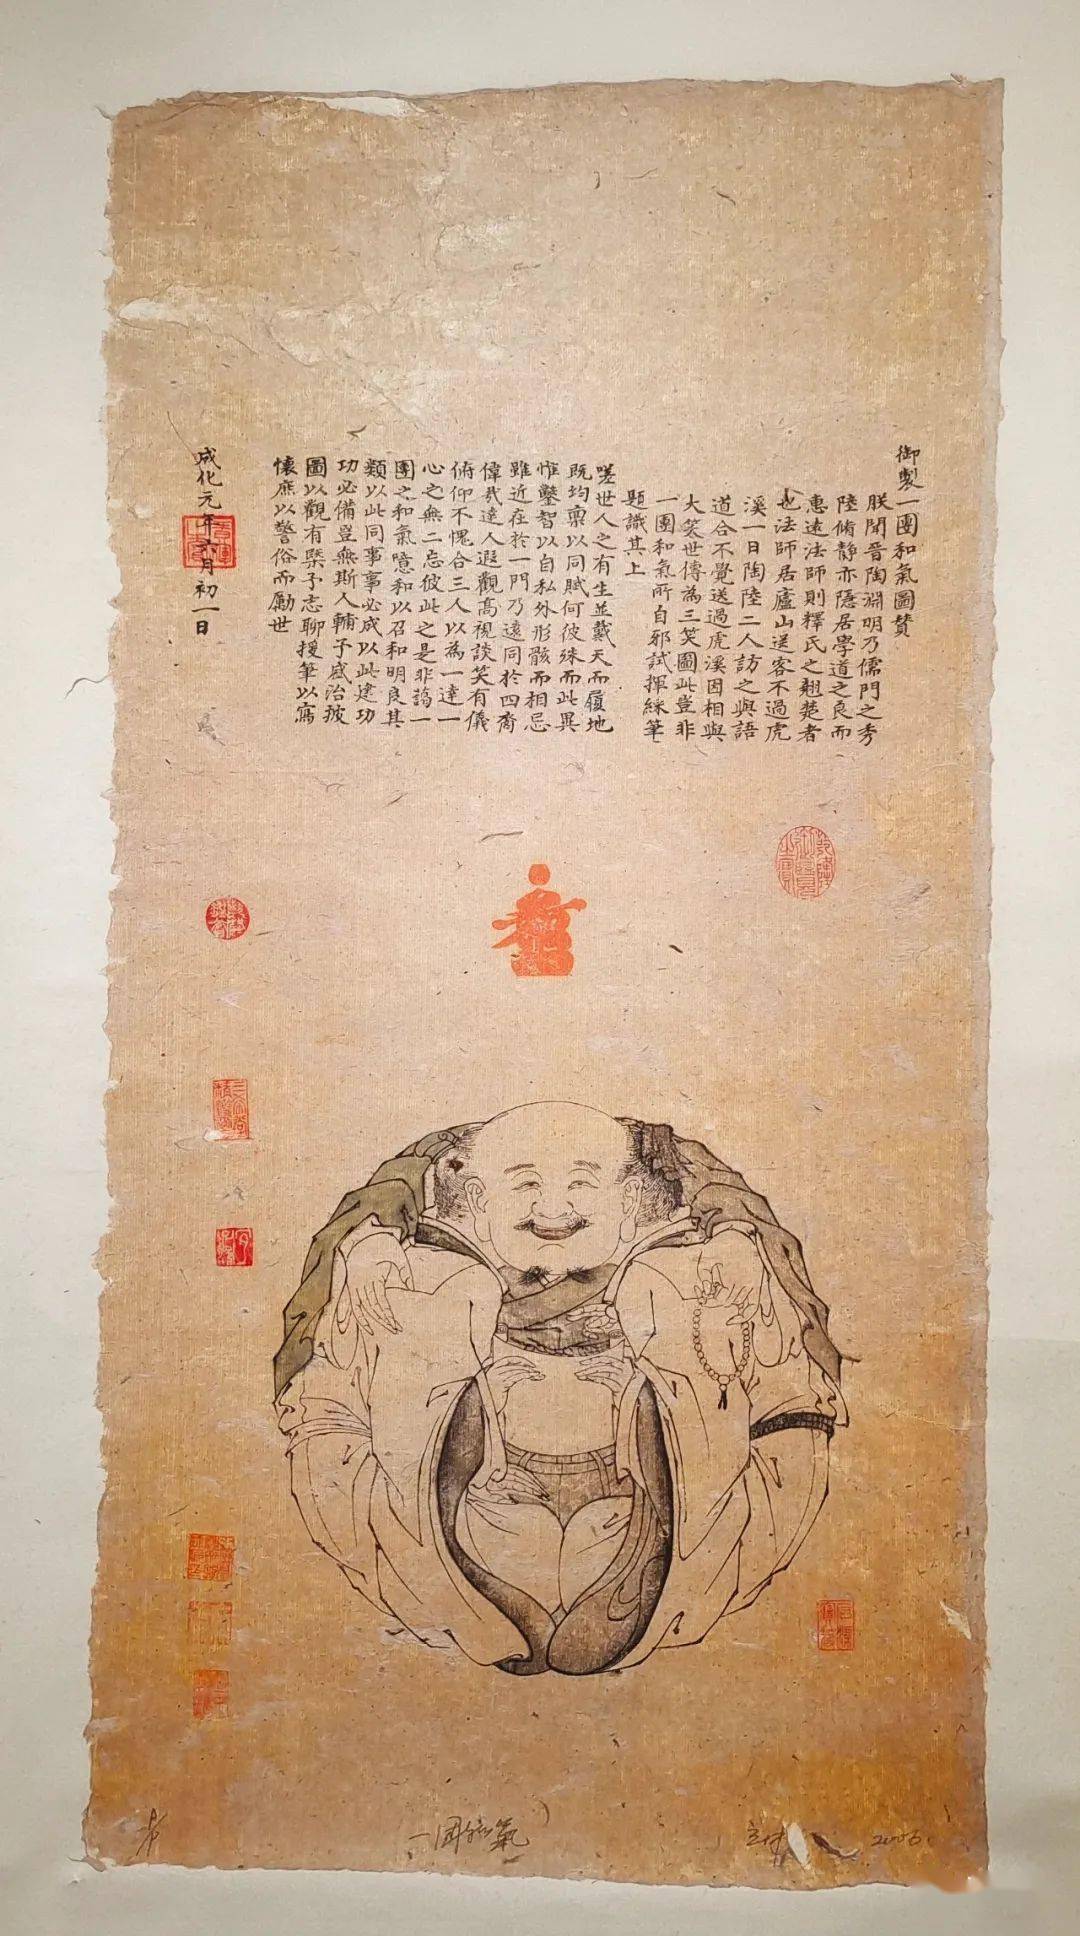 御製一團和氣圖贊
朕聞晉陶淵明乃儒門之秀
陸脩靜亦隱居學道之良而
惠遠法師則釋氏之翹楚者
也法師居廬山送客不過虎
溪一日陶陸二人訪之與語
道合不覺送過虎溪因相與
大笑世傳為三笑圖此豈非
一團和氣所自邪試揮綵筆
題識其上
嗟世人之有生並戴天而履地
既均稟以同賦何彼殊而此異
惟鑿智以自私外形骸而相忌
雖近在於一門乃遠同於四裔
偉哉達人遐觀高視談笑有儀
俯仰不愧合三人以為一達一
心之無二忘彼此之是非藹一
團之和氣噫和以召和明良其
類以此同事事必成以此建功
功必備豈無斯人輔予盛治披
圖以觀有槩予志聊援筆以寫
懷庶以警俗而勵世
成化元年六月初一日
一團和氣
2006.